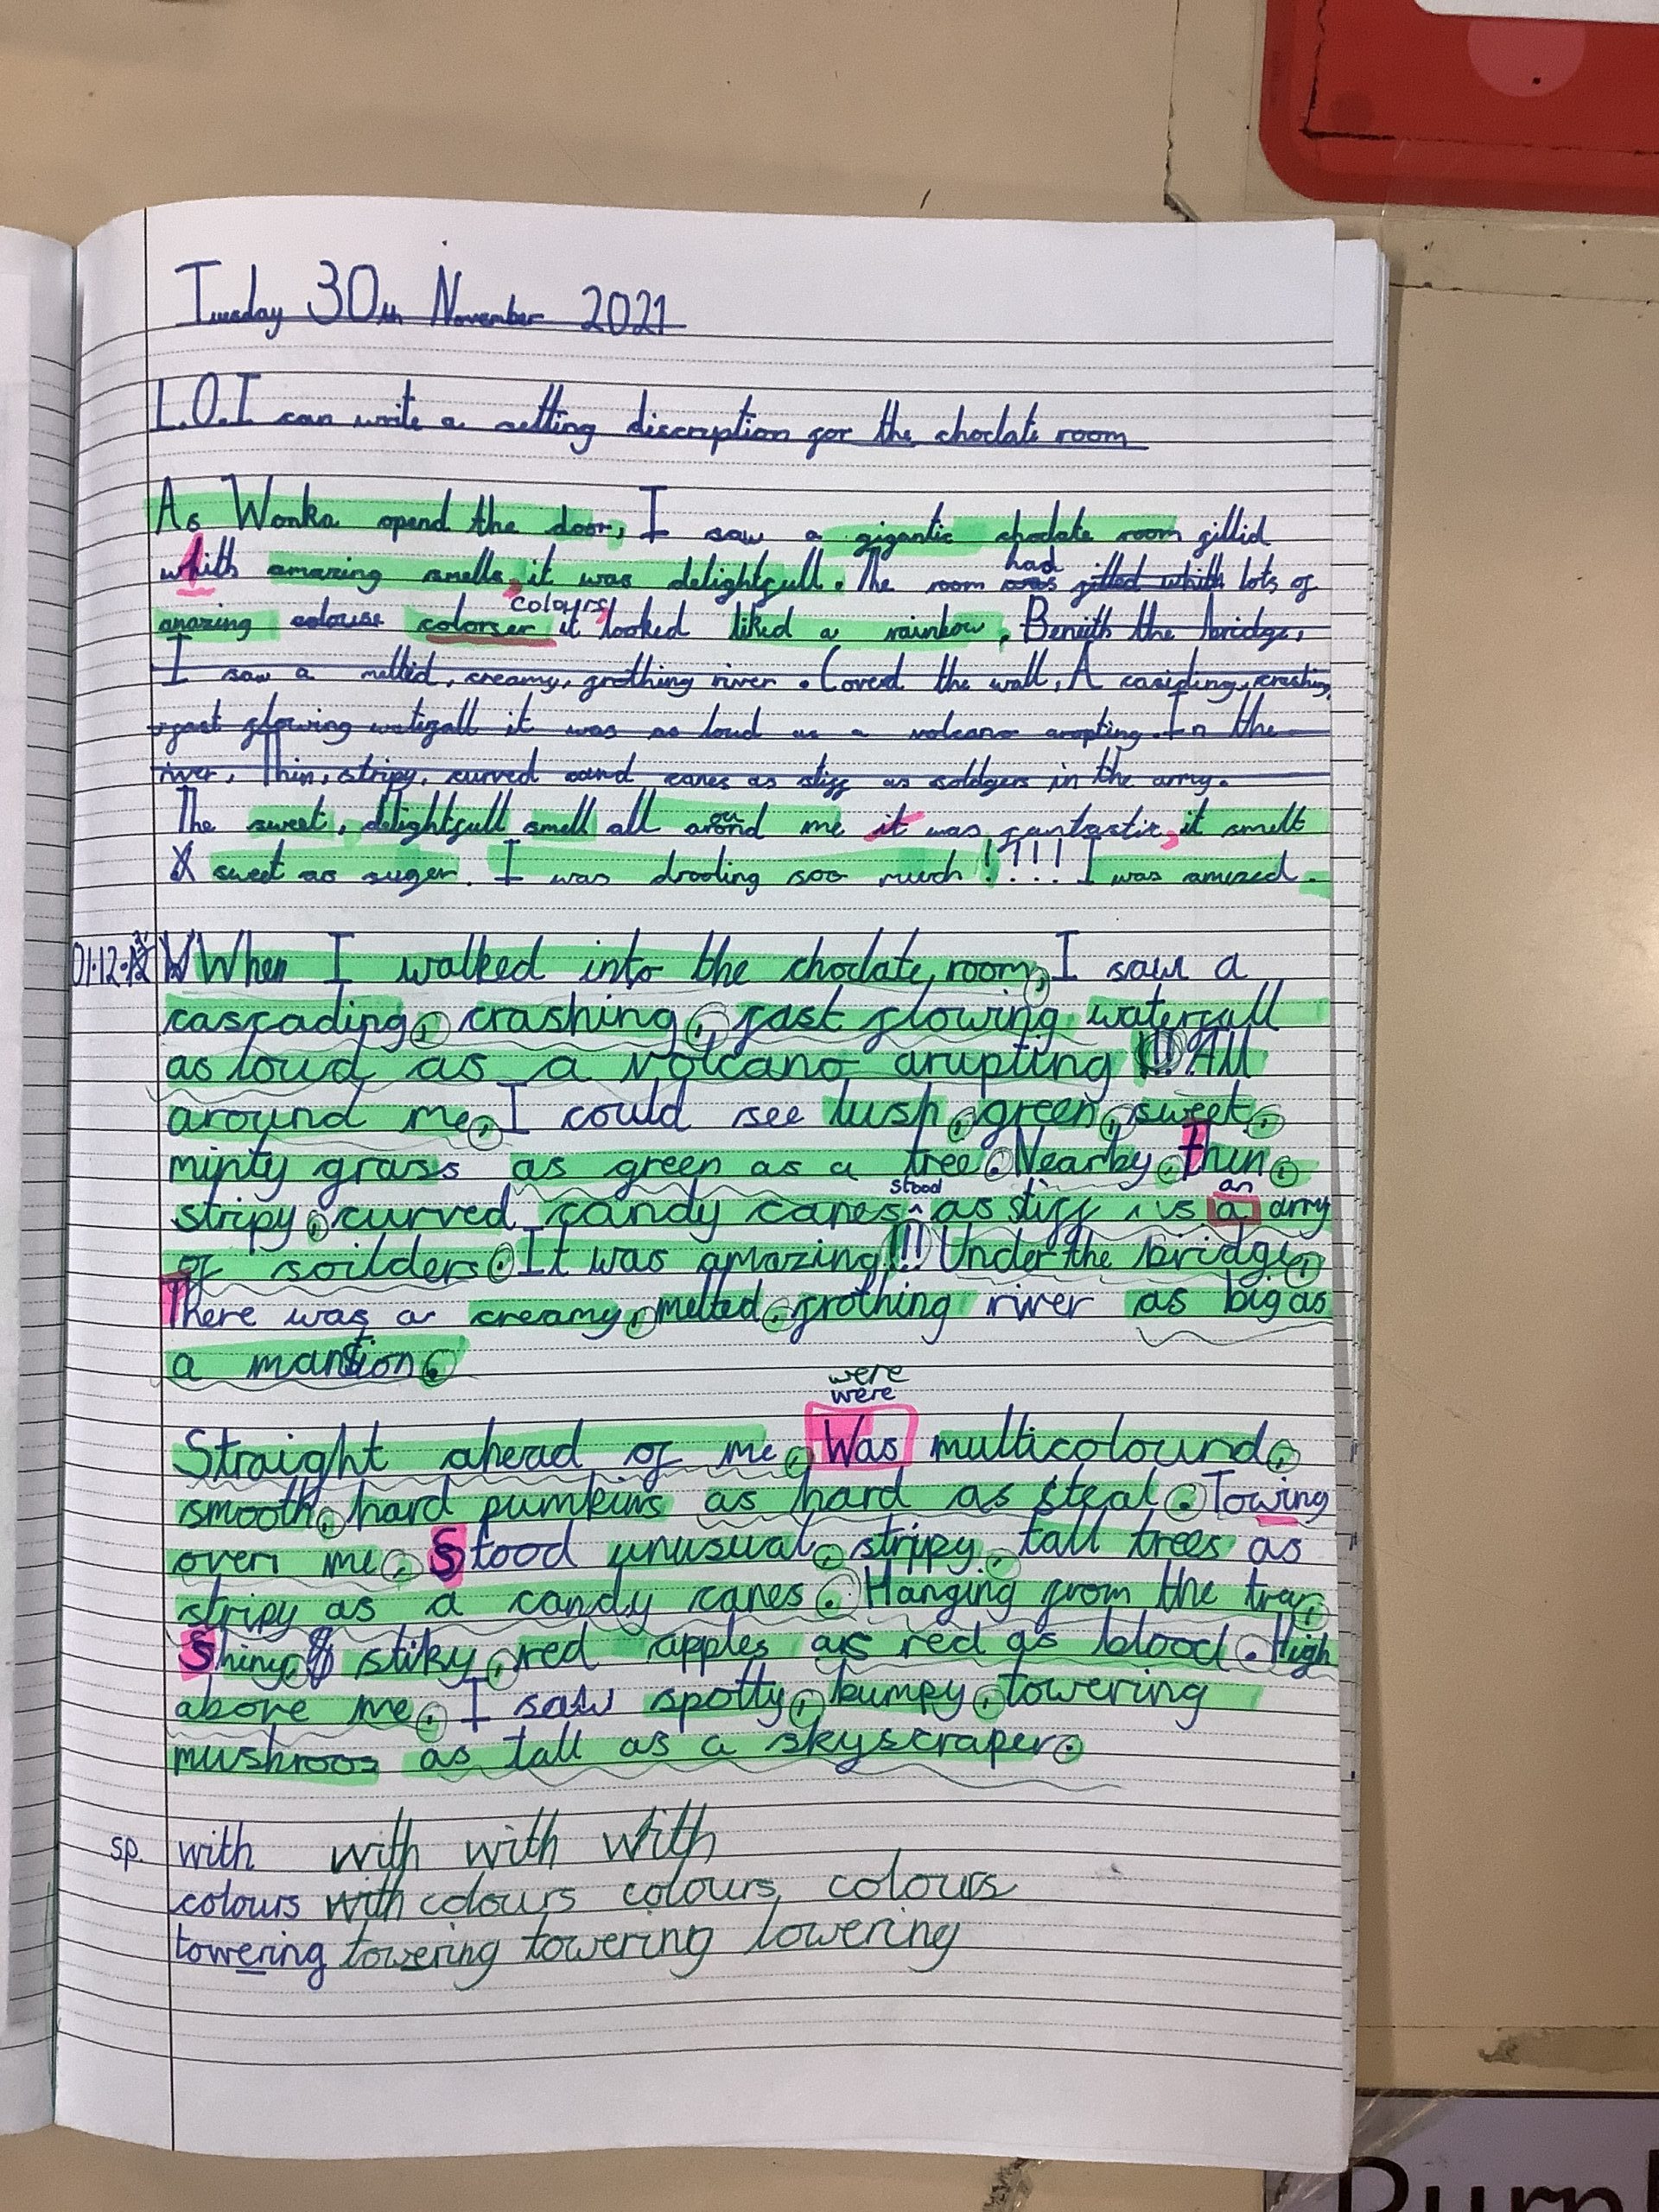 Tuesday 30th November 2021
L.O.I can write a setting discription for the choclate room
As Wonka opend the door, I saw a gigantic choclate room fillid
whith amazing smells, it was delightfull. The room was had filled whith lots of
amazing colouse colorser colours, it looked liked a rainbow. Beniith the bridge,
I saw a meltid, creamy, frothing river. Coverd the wall, A casiding, crashing,
fast flowing waterfall it was as loud as a volcano arupting. In the
river, Thin, stripy, curved cand canes as stiff as soldgers in the army.
The sweet, delightfull smell all around me it was fantastic, it smelt
sweet as suger. I was drooling soo much!!!!! I was amazed.
01.12.21 When I walked into the choclate room, I saw a
cascading, crashing, fast flowing waterfall
as loud as a volcano arupting!!! All
around me, I could see lush, green, sweet,
minty grass as green as a tree. Nearby, thin,
stripy, curved candy canes stood as stiff as a an army
of soilders. It was amazing!!! Under the bridge,
There was a creamy, melted, frothing river as big as
a mansion.
were
were
Straight ahead of me, Was multicolourd,
smooth, hard pumkins as hard as steal. Towing
over me, Stood unusual, stripy, tall trees as
stripy as a candy canes. Hanging from the tree,
Shiny, stiky, red apples as red as blood. High
above me, I saw spotty, bumpy, towering
mushroos as tall as a skyscraper.
sp. with with with with
colours with colours colours, colours
towering towering towering towering
Purpl